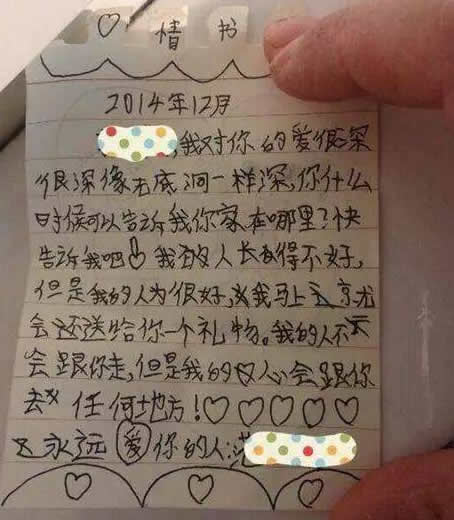 ♡ 情书
2014年12月
,我对你的爱很深
很深像无底洞一样深,你什么
时候可以告诉我你家在哪里?快
告诉我吧 我的人长的得不好,
但是我的人为很好,我马上
会还送给你一个礼物。我的人不
会跟你走,但是我的心会跟你
去 任何地方!♡♡♡♡♡
永远爱你的人:范